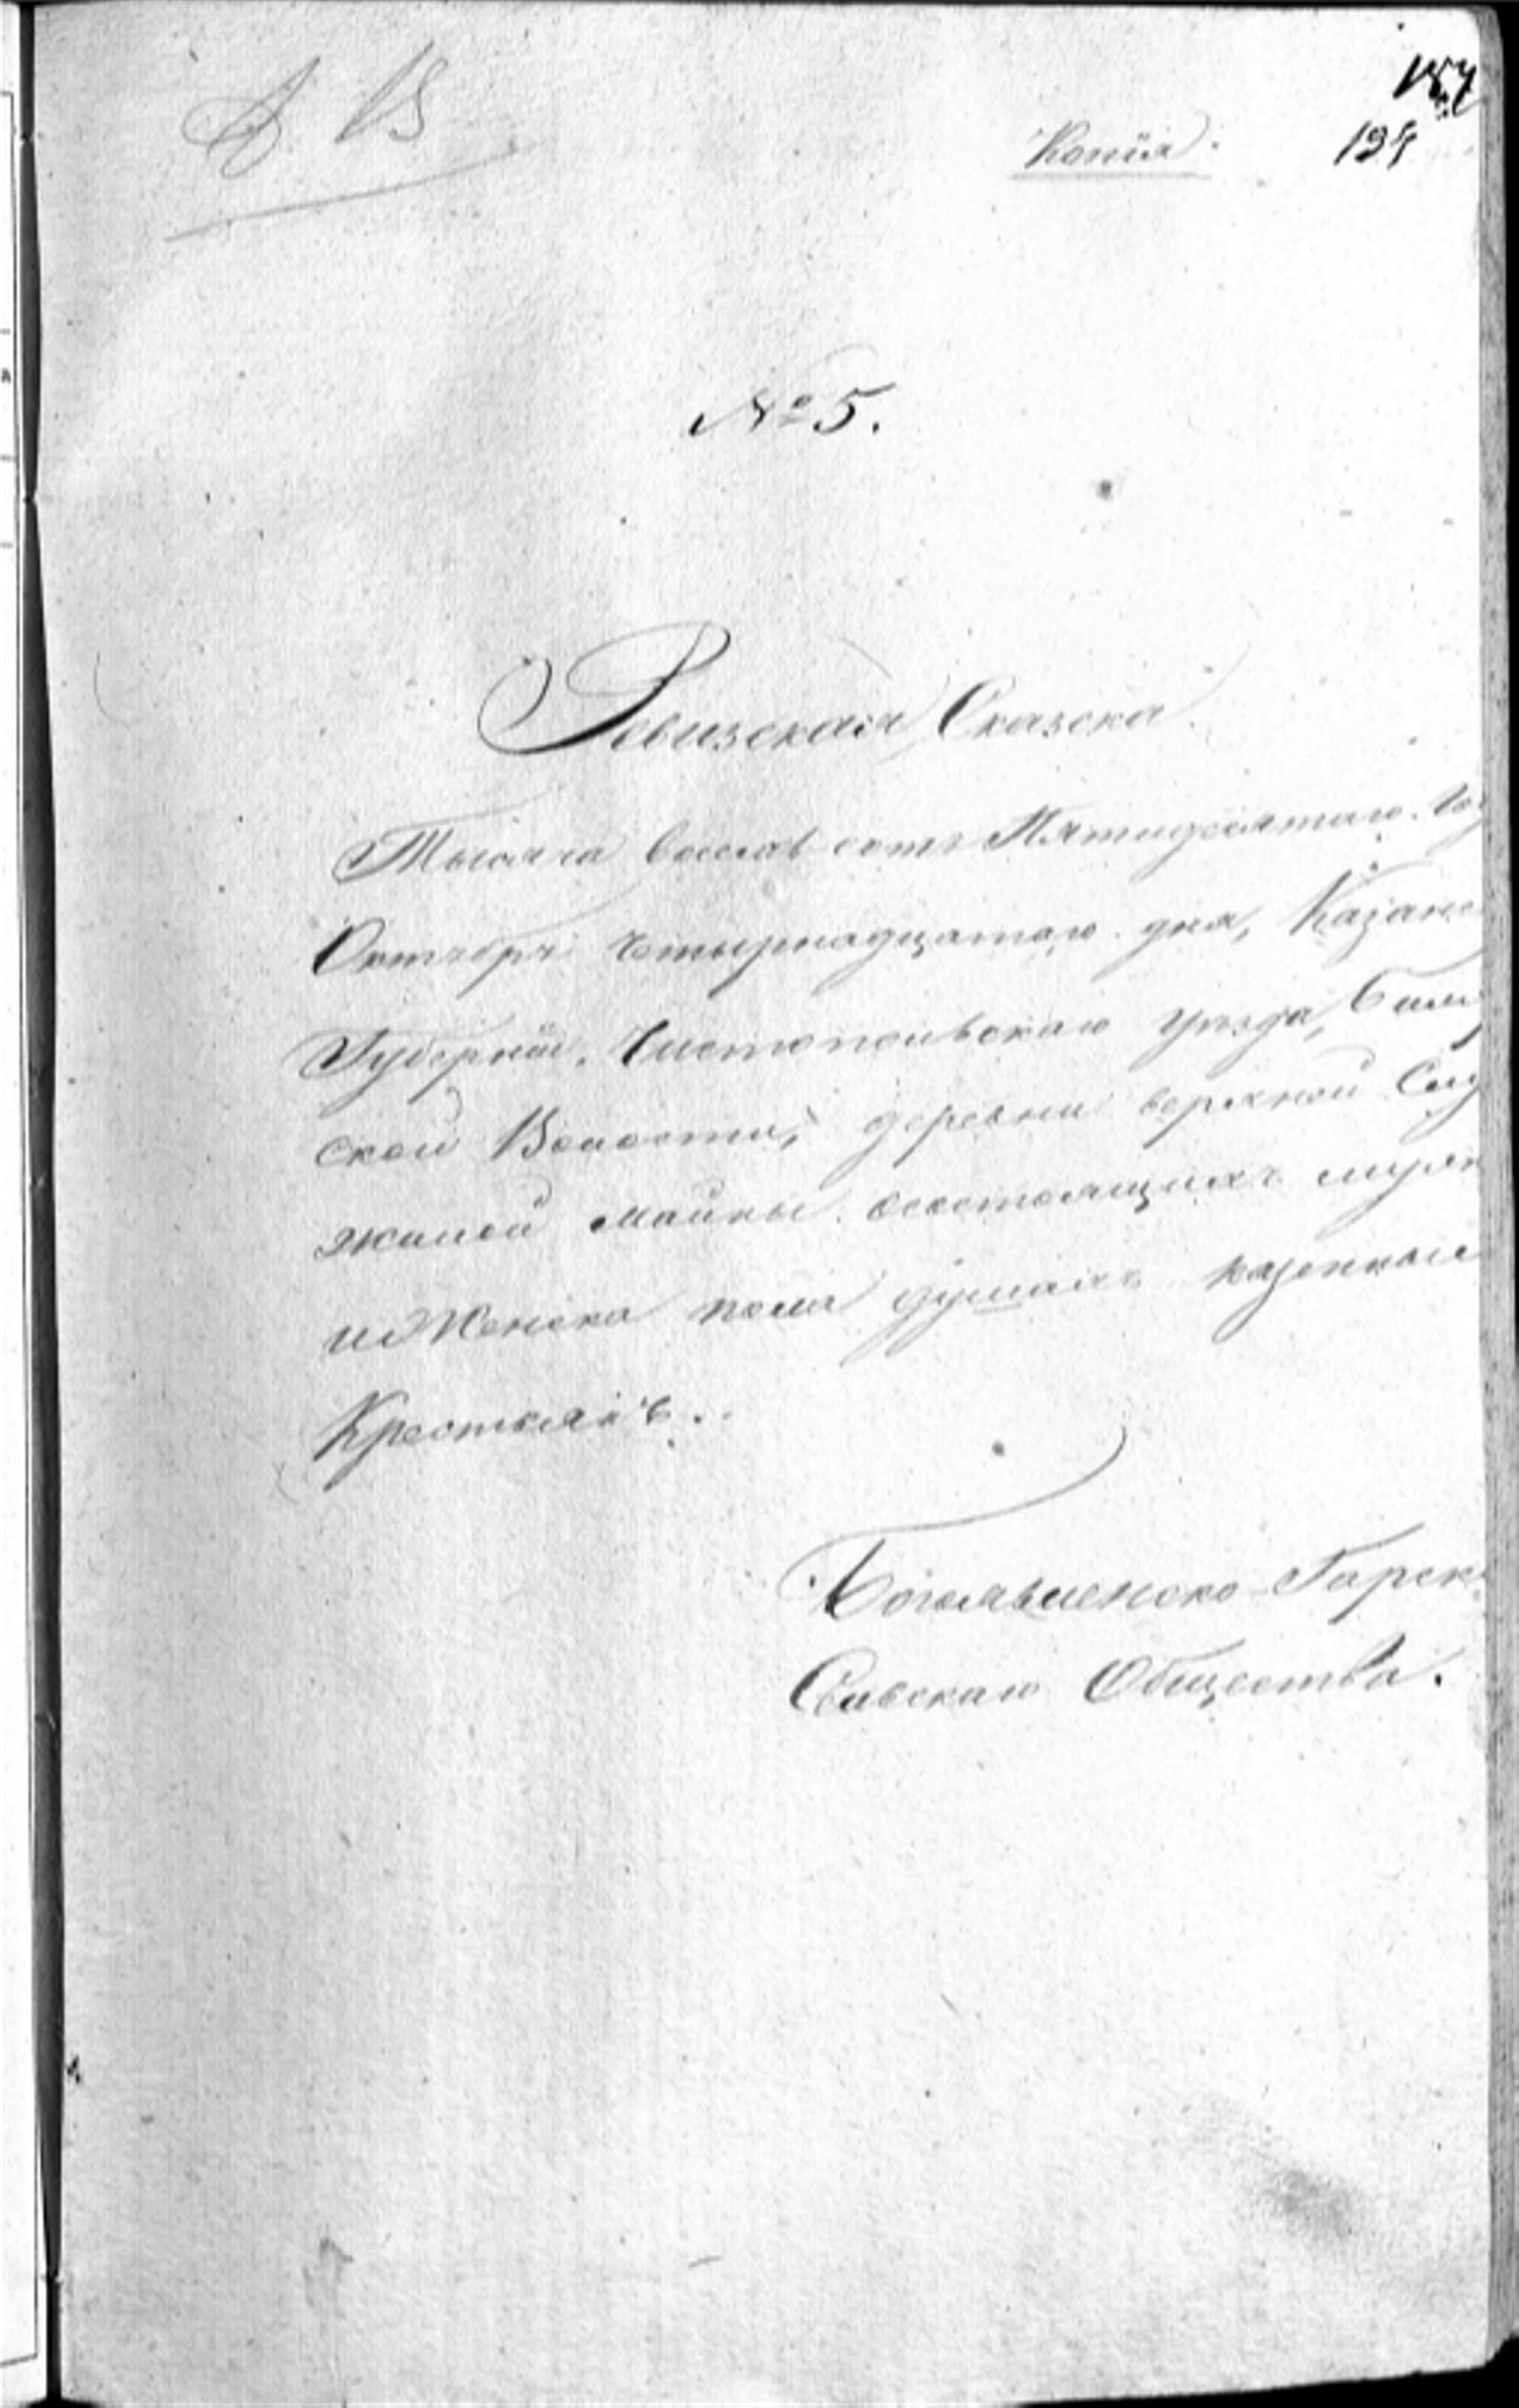 Копія.
194
№ 5.
Ревизская Сказска
Тысяча восемь сотъ Пятидесятаго. го
Октября четырнадцатаго дня, Казанс
Губерніи, Чистопольскаго уезда,
ской Волости, деревни верхней
жилой Майны. о состоящихъ мужи
и Женска пола душахъ казенны
Крестьянъ.
Богоявленско-Горск
Сельскаго Общества.